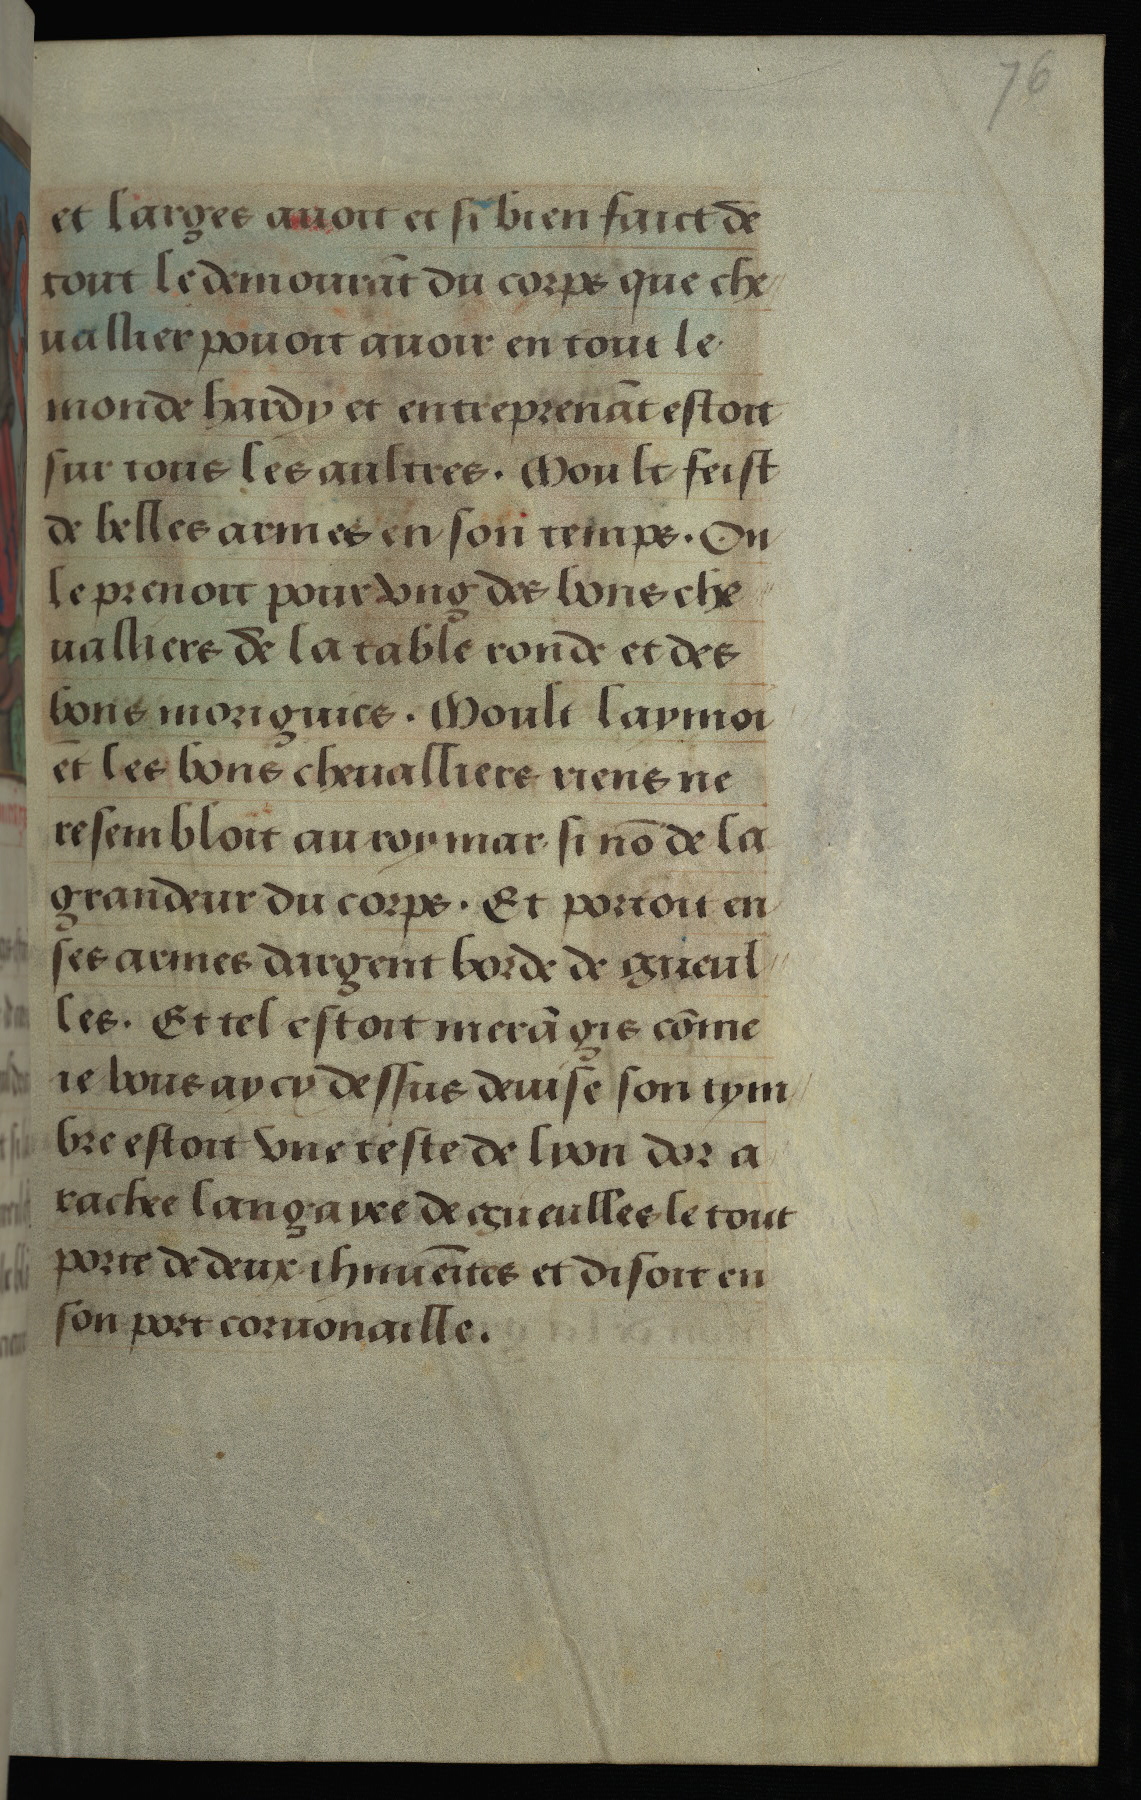 76
et larges auoit et si bien faict de
tout le demourāt du corps que che
uallier pouoit auoir en tout le
monde hardy et entreprenāt estoit
sur tous les aultres. Moult feist
de belles armes en son temps. On
le prenoit pour vng des bons che
ualliers de la table ronde et des
bons moriginés. Moult laymoi
ēt les bons cheualliers riens ne
resembloit au roy mar si nō de la
grandeur du corps. Et portoit en
ses armes dargent borde de gueul
les. Et tel estoit merāgis cōme
ie vous ay cy dessus deuise son tym
bre estoit vne teste de lyon dor a
rachee langayee de gueulles le tout
porte de deux et disoit en
son port cornouaille.